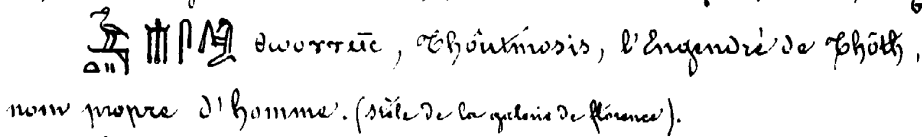 Thôutmosis, l'Engendré de Thôth,
nom propre d'homme. (Stèle de la galerie de florence).